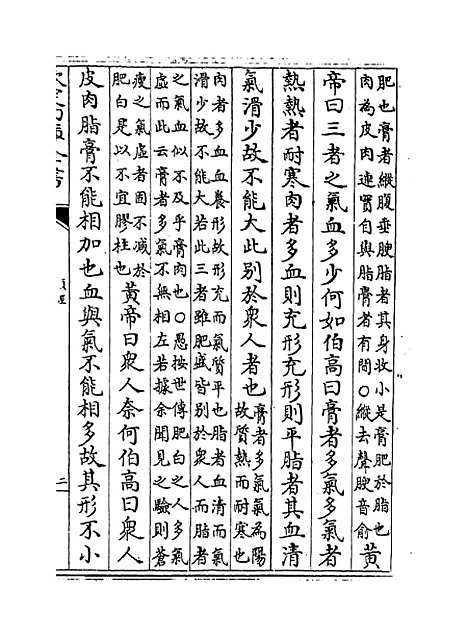 肥也膏者縱腹垂腴脂者其身收小是膏肥於脂也
肉為皮肉連實自與脂膏者有間○縱去聲腴音俞
黃
帝曰三者之氣血多少何如伯高曰膏者多氣多氣者
熱熱者耐寒肉者多血則充形充形則平脂者其血清
氣滑少故不能大此别於衆人者也
膏者多氣氣為陽
故質熱而耐寒也
肉者多血血養形故形充而氣質平也脂者血清而氣
滑少故不能大若此三者雖肥盛皆别於衆人而脂者
之氣血似不及乎膏肉也○愚按世傳肥白之人多氣
虛而此云膏者多氣不無相左若據余聞見之驗則蒼
瘦之氣虛者固不減於
肥白是以不宜膠柱也
黃帝曰衆人奈何伯高曰衆人
皮肉脂膏不能相加也血與氣不能相多故其形不小
全書
二